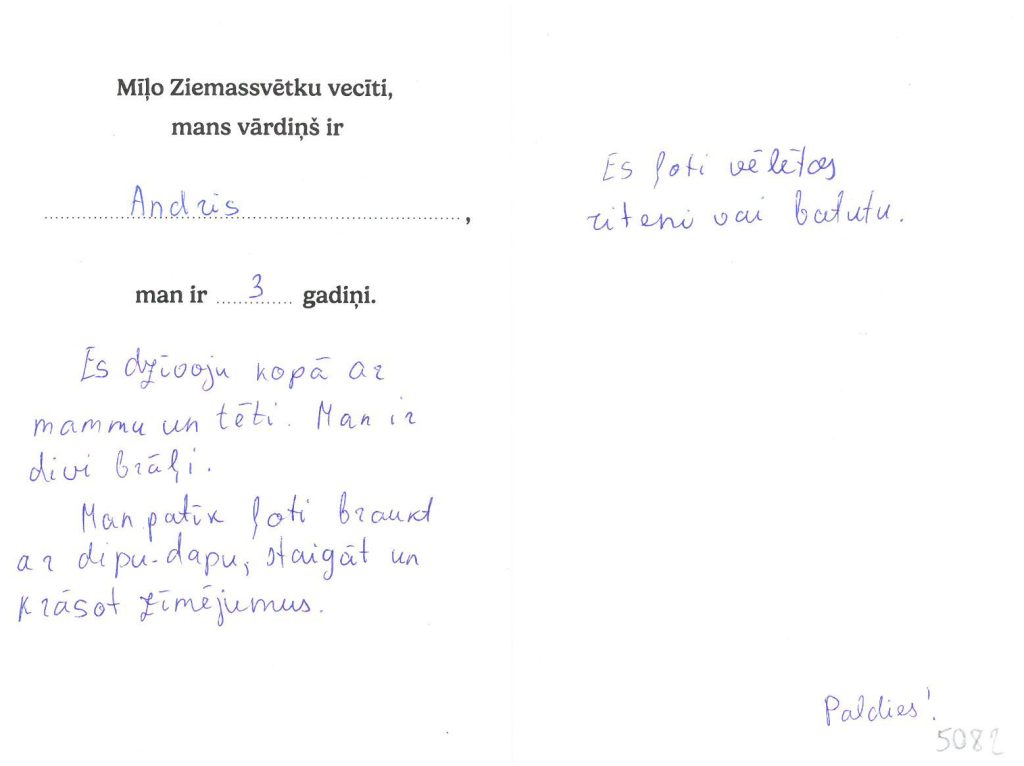 Mīļo Ziemassvētku vecīti,
mans vārdiņš ir
Andris,
man ir 3 gadiņi.
Es dzīvoju kopā ar
mammu un tēti. Man ir
divi brāļi.
Man patīk ļoti braukt
ar dipu-dapu, staigāt un
krāsot zīmējumus.
Es ļoti vēlētos
riteni vai batutu.
Paldies!
5082